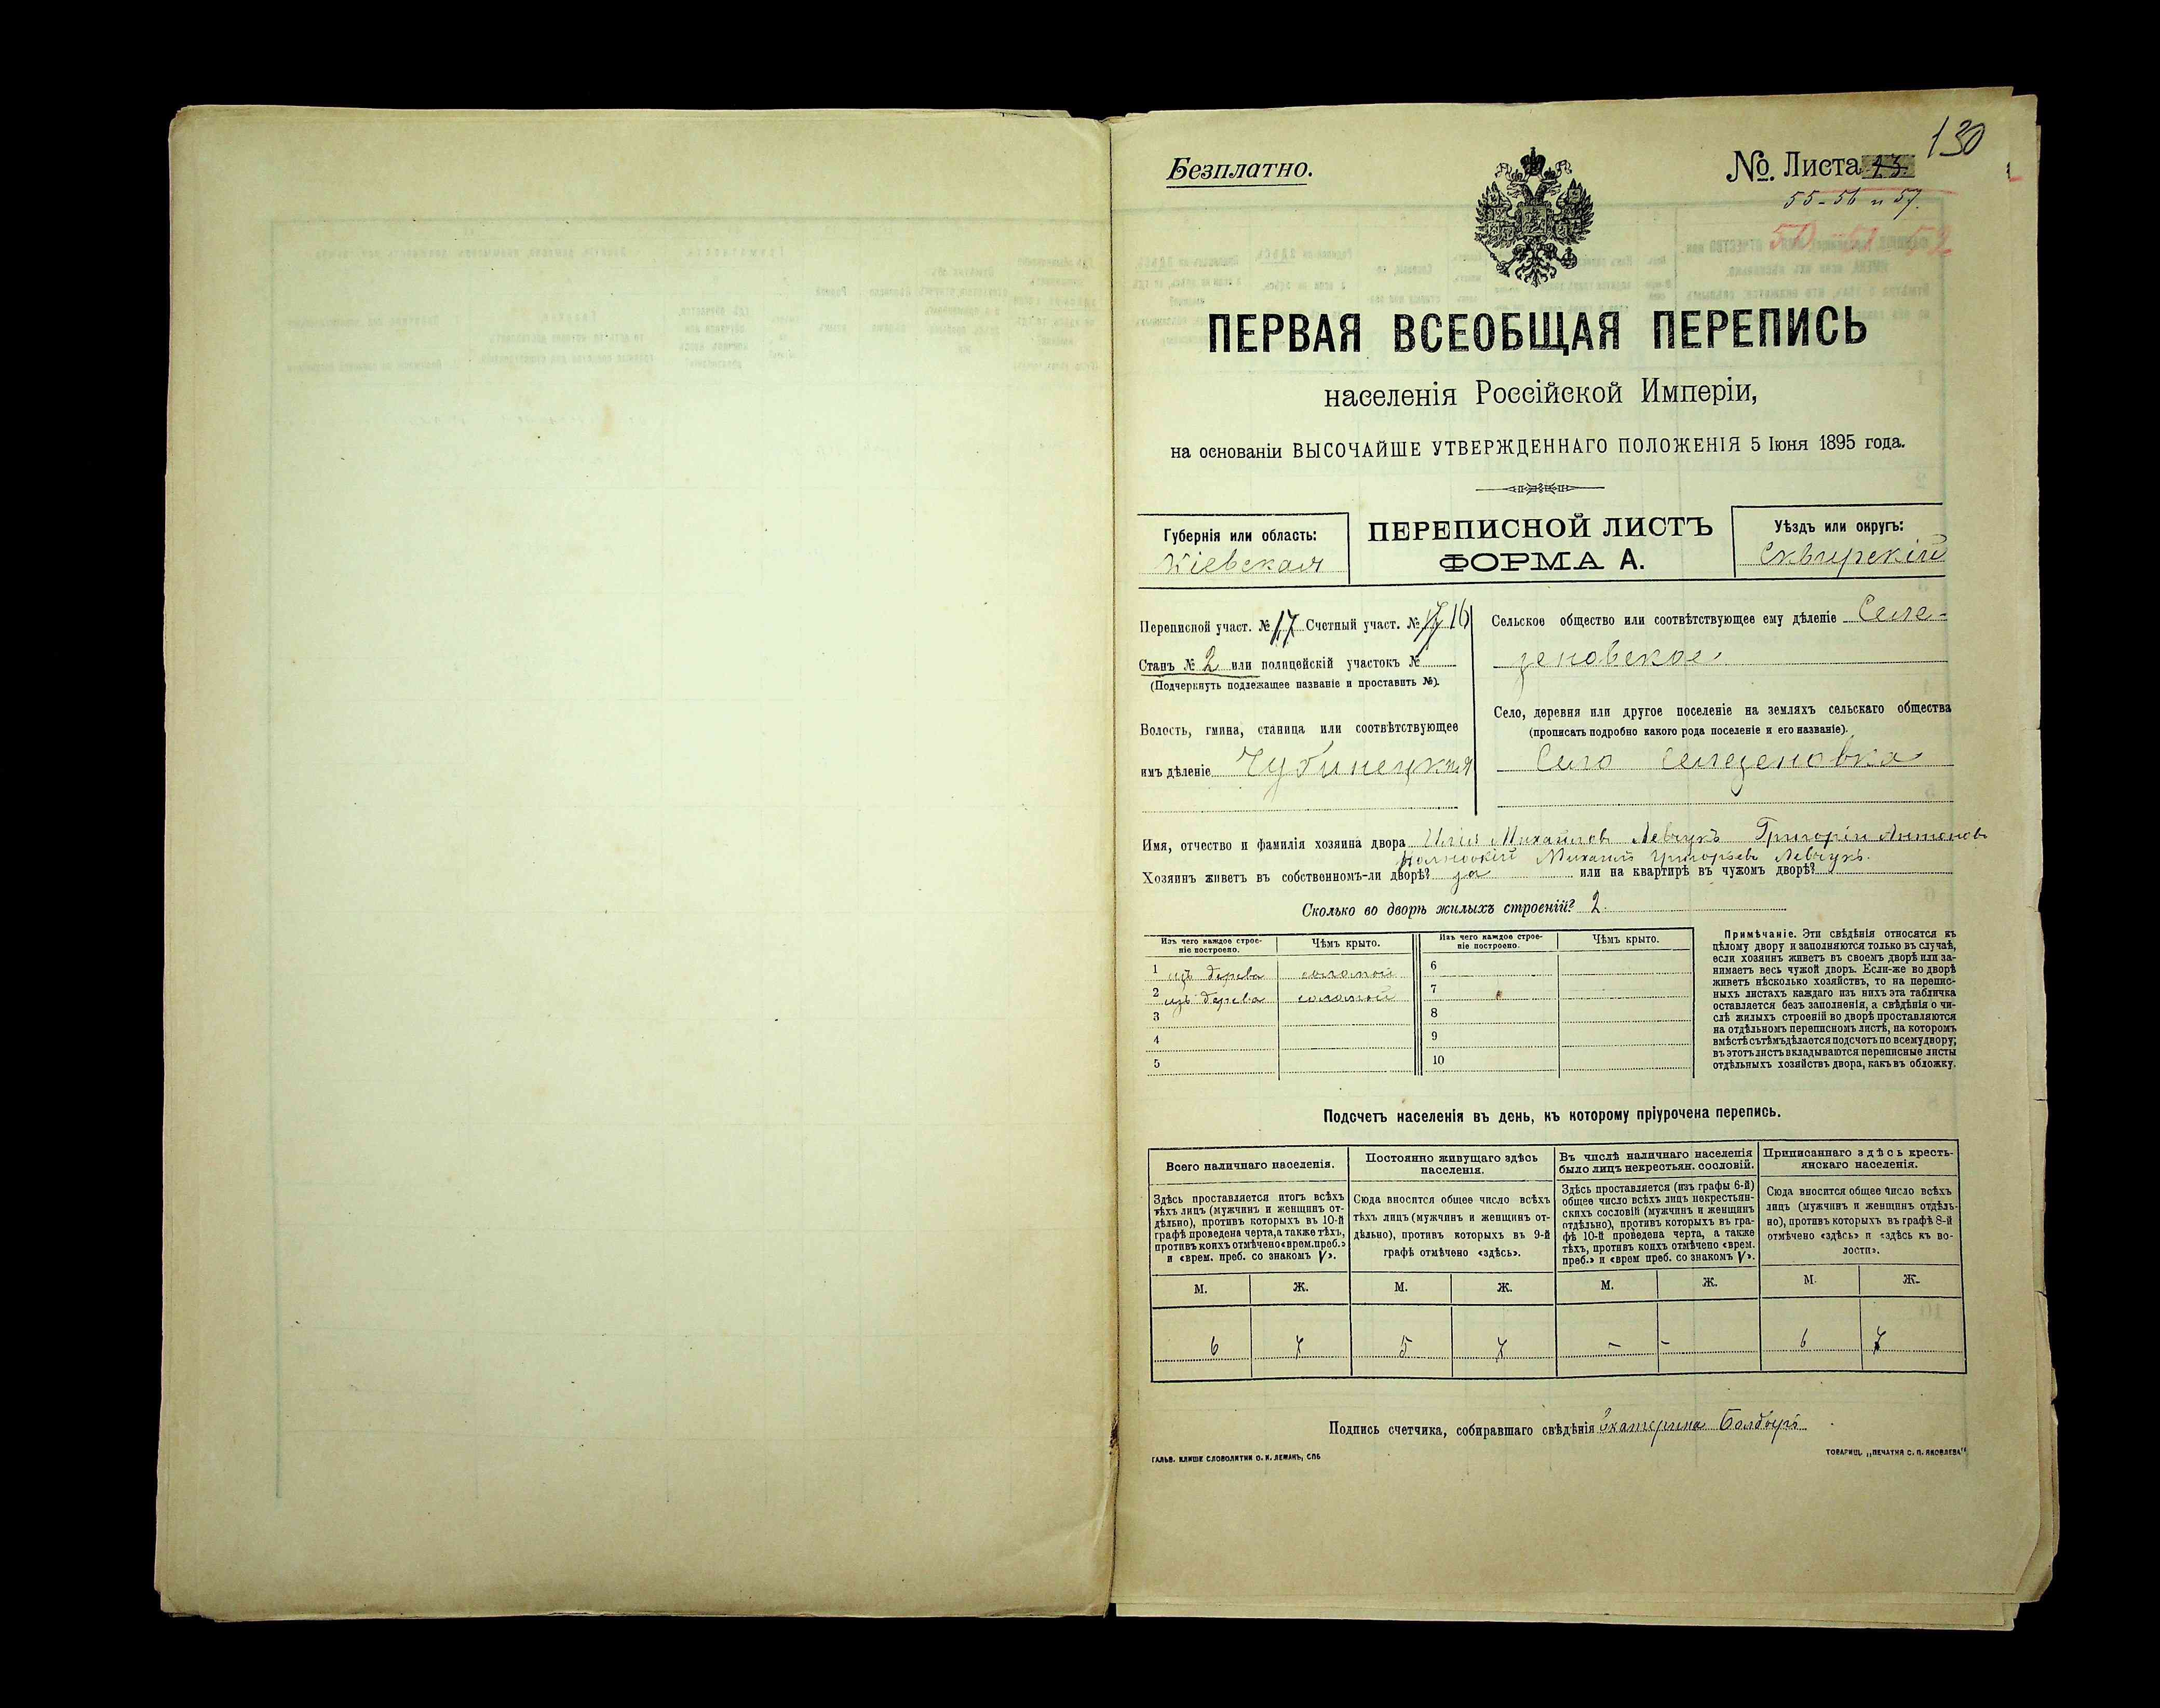 130
Безплатно.
№. Листа 23.
55-56 и 57.
50 51 52
ПЕРВАЯ ВСЕОБЩАЯ ПЕРЕПИСЬ
населенія Россійской Имперіи,
на основаніи ВЫСОЧАЙШЕ УТВЕРЖДЕННАГО ПОЛОЖЕНІЯ 5 Іюня 1895 года.
Губернія или область:
Кіевская
ПЕРЕПИСНОЙ ЛИСТЪ
ФОРМА А.
Уѣздъ или округъ:
Сквирскій
Переписной участ. № 17 Счетный участ. № 17 16
Станъ № 2 или полицейскій участокъ №
(Подчеркнуть подлежащее названіе и проставить №).
Волость, гмина, станица или соотвѣтствующее
имъ дѣленіе Чубинецкая
Сельское общество или соотвѣтствующее ему дѣленіе Селе-
зеновское
Село, деревня или другое поселеніе на земляхъ сельскаго общества
(прописать подробно какого рода поселеніе и его названіе).
Село Селезеновка
Имя, отчество и фамилія хозяина двора Илія Михайловъ Левчукъ Григорій Антоновъ
Михаилъ Григорьевъ Левчукъ.
Хозяинъ живетъ въ собственномъ-ли дворѣ? да или на квартирѣ въ чужомъ дворѣ?
Сколько во дворѣ жилыхъ строеній? 2.
Изъ чего каждое строе-
ніе построено.
Чѣмъ крыто.
Изъ чего каждое строе-
ніе построено.
Чѣмъ крыто.
1 изъ дерева соломой
2 изъ дерева соломой
3
4
5
6
7
8
9
10
Примѣчаніе. Эти свѣдѣнія относятся къ
цѣлому двору и заполняются только въ случаѣ,
если хозяинъ живетъ въ своемъ дворѣ или за-
нимаетъ весь чужой дворъ. Если-же во дворѣ
живетъ нѣсколько хозяйствъ, то на перепис-
ныхъ листахъ каждаго изъ нихъ эта табличка
оставляется безъ заполненія, а свѣдѣнія о чи-
слѣ жилыхъ строеній во дворѣ проставляются
на отдѣльномъ переписномъ листѣ, на которомъ
вмѣстѣ съ тѣмъ дѣлается подсчетъ по всему двору;
въ этотъ листъ вкладываются переписные листы
отдѣльныхъ хозяйствъ двора, какъ въ обложку.
Подсчетъ населенія въ день, къ которому пріурочена перепись.
Всего наличнаго населенія.
Постоянно живущаго здѣсь
населенія.
Въ числѣ наличнаго населенія
было лицъ некрестьян. сословій.
Приписаннаго здѣсь кресть-
янскаго населенія.
Здѣсь проставляется итогъ всѣхъ
тѣхъ лицъ (мужчинъ и женщинъ от-
дѣльно), противъ которыхъ въ 10-й
графѣ проведена черта, а также тѣхъ,
противъ коихъ отмѣчено «врем. преб.»
и «врем. преб. со знакомъ V».
Сюда вносится общее число всѣхъ
тѣхъ лицъ (мужчинъ и женщинъ от-
дѣльно), противъ которыхъ въ 9-й
графѣ отмѣчено «здѣсь».
Здѣсь проставляется (изъ графы 6-й)
общее число всѣхъ лицъ некрестьян-
скихъ сословій (мужчинъ и женщинъ
отдѣльно), противъ которыхъ въ гра-
фѣ 10-й проведена черта, а также
тѣхъ, противъ коихъ отмѣчено «врем.
преб.» и «врем преб. со знакомъ V».
Сюда вносится общее число всѣхъ
лицъ (мужчинъ и женщинъ отдѣль-
но), противъ которыхъ въ графѣ 8-й
отмѣчено «здѣсь» и «здѣсь къ во-
лости».
М. Ж. М. Ж. М. Ж. М. Ж.
6 7 5 7 - - 6 7
Подпись счетчика, собиравшаго свѣдѣнія Екатерина
ГАЛЬВ. КЛИШЕ СЛОВОЛИТНИ О. И. ЛЕМАНЪ, СПБ
ТОВАРИЩ. „ПЕЧАТНЯ С. П. ЯКОВЛЕВА"